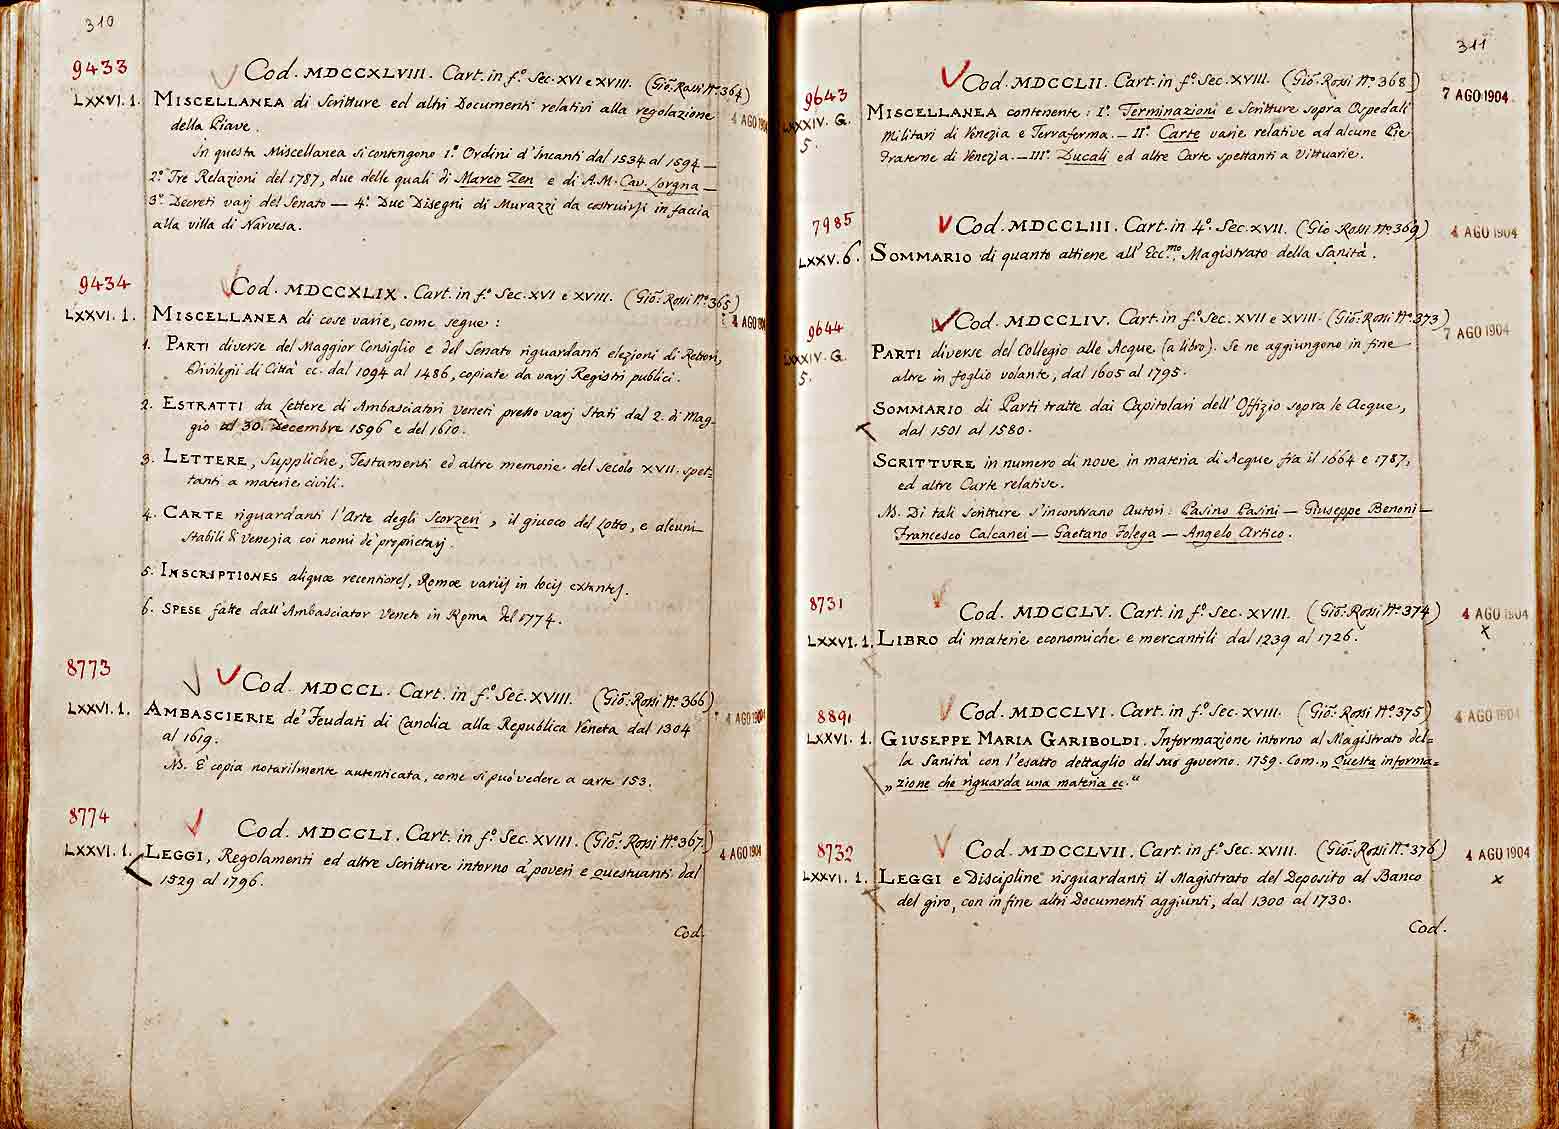 310
9433
Cod. MDCCXLVIII. Cart. in f.º Sec. XVI e XVIII. (Gio: Rossi Nº 364)
LXXVI. 1. MISCELLANEA di Scritture ed altri Documenti relativi alla regolazione
4 AGO 1904
della Piave.
In questa Miscellanea si contengono 1.º Ordini d'Incanti dal 1534 al 1594 —
2.º Tre Relazioni del 1787, due delle quali di Marco Zen e di A. M. Cav. Lorgna —
3.º Decreti varj del Senato — 4.º Due Disegni di Murazzi da costruirsi in faccia
alla villa di Narvesa.
9434
Cod. MDCCXLIX. Cart. in f.º Sec. XVI e XVIII. (Gio: Rossi Nº 365)
LXXVI. 1. MISCELLANEA di cose varie, come segue:
4 AGO 1904
1. PARTI diverse del Maggior Consiglio e del Senato riguardanti elezioni di Rettori,
Privilegii di Città ec. dal 1094 al 1486, copiate da varj Registri publici.
2. ESTRATTI da Lettere di Ambasciatori Veneti presso varj Stati dal 2. di Mag-
gio al 30. Decembre 1596 e del 1610.
3. LETTERE, Suppliche, Testamenti ed altre memorie del secolo XVII. spet-
tanti a materie civili.
4. CARTE riguardanti l'Arte degli Scorzeri, il giuoco del Lotto, e alcuni
Stabili di Venezia coi nomi de' proprietarj.
5. INSCRIPTIONES aliquæ recentiores, Romæ variis in locis extantes.
6. SPESE fatte dall'Ambasciator Veneto in Roma del 1774.
8773
Cod. MDCCL. Cart. in f.º Sec. XVIII. (Gio: Rossi Nº 366)
LXXVI. 1. AMBASCIERIE de' Feudati di Candia alla Republica Veneta dal 1304
4 AGO 1904
al 1619.
NB. È copia notarilmente autenticata, come si può vedere a carte 153.
8774
Cod. MDCCLI. Cart. in f.º Sec. XVIII. (Gio: Rossi Nº 367.)
LXXVI. 1. LEGGI, Regolamenti ed altre Scritture intorno a' poveri e questuanti dal
4 AGO 1904
1529 al 1796.
Cod.
311
9643
Cod. MDCCLII. Cart. in f.º Sec. XVIII. (Gio: Rossi Nº 368)
7 AGO 1904
LXXXIV. G. 5.
MISCELLANEA contenente: Iº. Terminazioni e Scritture sopra Ospedali
Militari di Venezia e Terraferma. — IIº. Carte varie relative ad alcune Pie
Fraterne di Venezia. — IIIº. Ducali ed altre Carte spettanti a Vittuarie.
7985
Cod. MDCCLIII. Cart. in 4.º Sec. XVII. (Gio Rossi Nº 369)
4 AGO 1904
LXXV. 6. SOMMARIO di quanto attiene all'Ecc.mo Magistrato della Sanità.
9644
Cod. MDCCLIV. Cart. in f.º Sec. XVII e XVIII. (Gio: Rossi Nº 373)
7 AGO 1904
LXXXIV. G. 5.
PARTI diverse del Collegio alle Acque (a libro). Se ne aggiungono in fine
altre in foglio volante, dal 1605 al 1795.
SOMMARIO di Parti tratte dai Capitolari dell'Offizio sopra le Acque,
dal 1501 al 1580.
SCRITTURE in numero di nove in materia di Acque fra il 1664 e 1787,
ed altre Carte relative.
NB. Di tali Scritture s'incontrano Autori: Casino Casini — Giuseppe Benoni —
Francesco Calcanei — Gaetano Folega — Angelo Artico.
8731
Cod. MDCCLV. Cart. in f.º Sec. XVIII. (Gio: Rossi Nº 374)
4 AGO 1904
x
LXXVI. 1. LIBRO di materie economiche e mercantili dal 1239 al 1726.
8891
Cod. MDCCLVI. Cart. in f.º Sec. XVIII. (Gio: Rossi Nº 375)
4 AGO 1904
LXXVI. 1. GIUSEPPE MARIA GARIBOLDI. Informazione intorno al Magistrato del=
la Sanità con l'esatto dettaglio del suo governo. 1759. Com. „ Questa informa=
„ zione che riguarda una materia ec.“
8732
Cod. MDCCLVII. Cart. in f.º Sec. XVIII. (Gio: Rossi Nº 376)
4 AGO 1904
x
LXXVI. 1. LEGGI e Discipline risguardanti il Magistrato del Deposito al Banco
del giro, con in fine altri Documenti aggiunti, dal 1300 al 1730.
Cod.